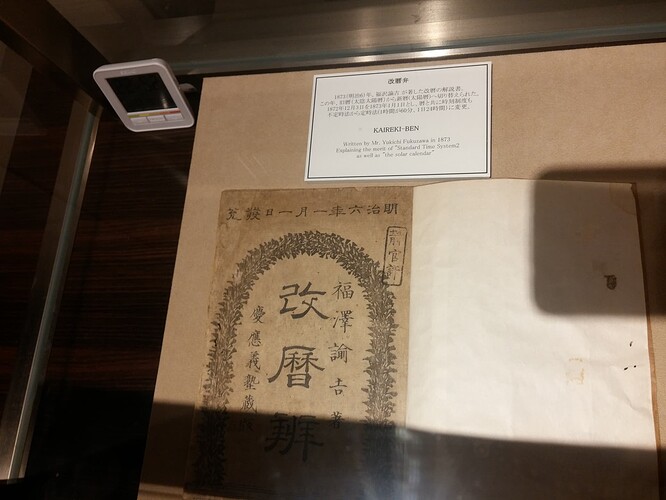 改暦弁
1873(明治6)年、福沢諭吉 が著した改暦の解説書。
この年、旧暦(太陰太陽暦)から新暦(太陽暦)へ切り替えられた。
1872年12月3日を1873年1月1日とし、暦と共に時刻制度も
不定時法から定時法(1時間が60分、1日24時間)に変更。
KAIREKI-BEN
Written by Mr. Yukichi Fukuzawa in 1873
Explaining the merit of "Standard Time System2
as well as "the solar calendar"
明治六年一月一日發兌
官許
福澤諭吉著
改暦辨
慶應義塾蔵版